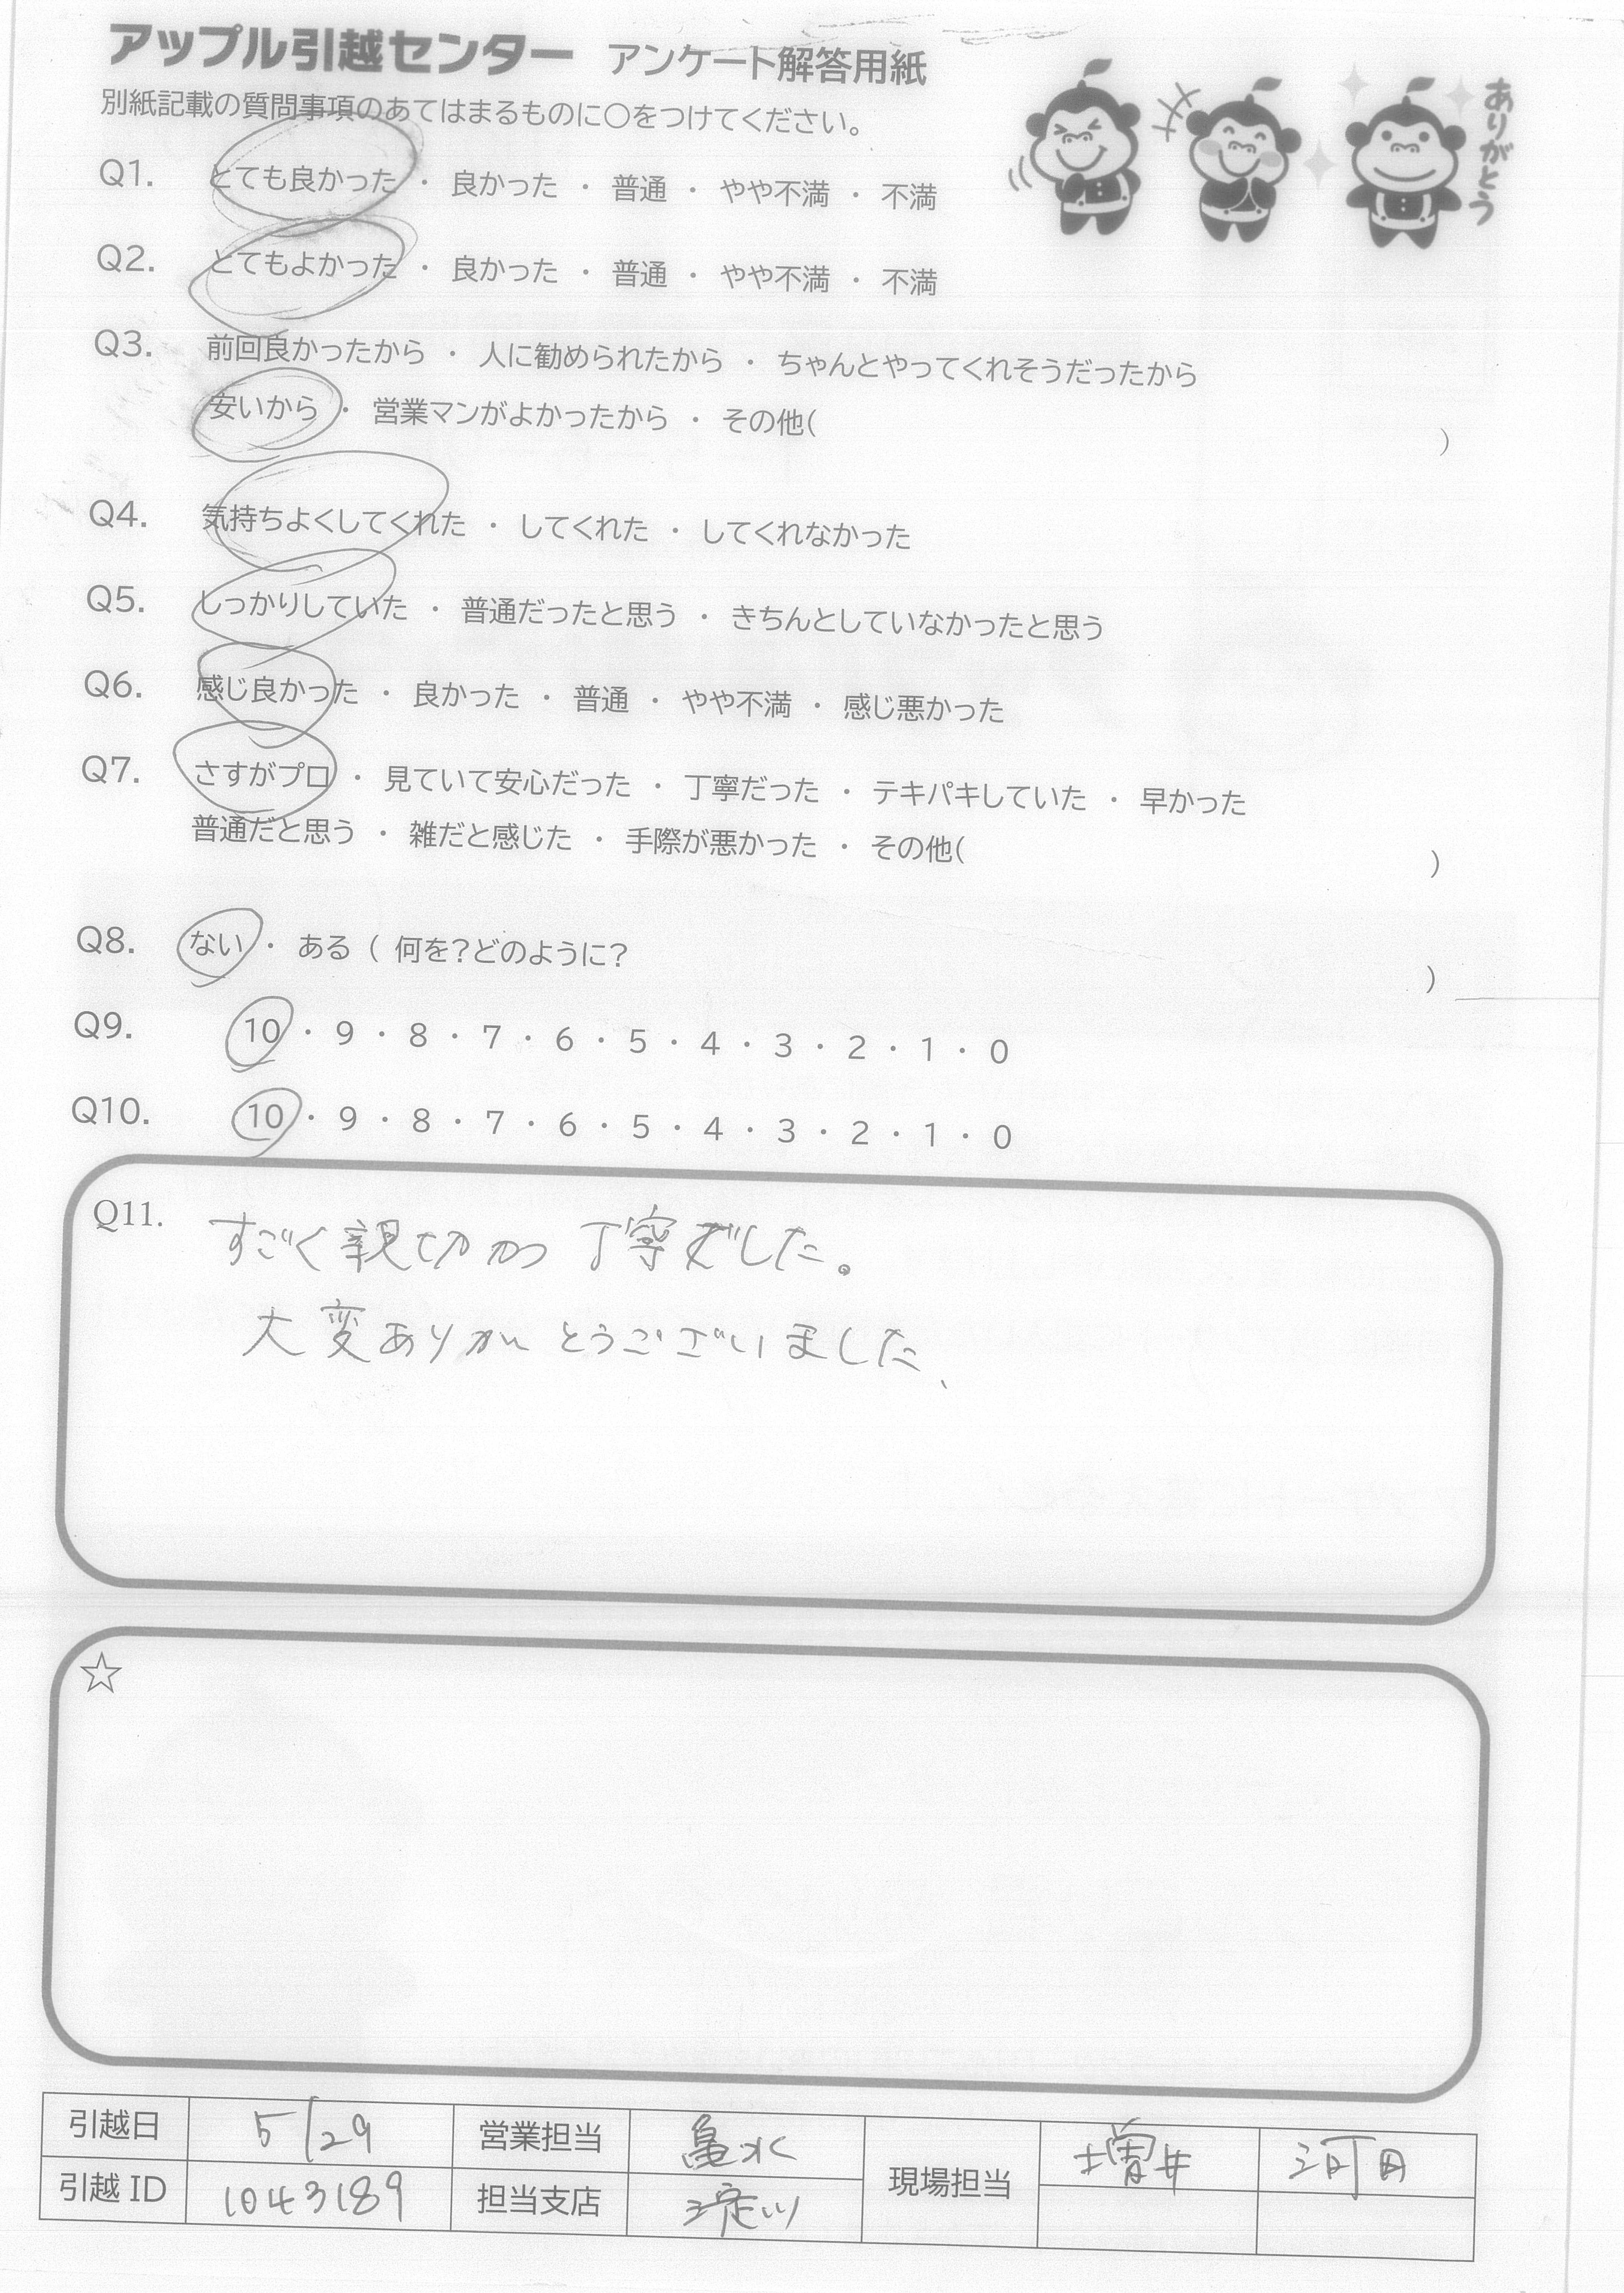 アップル引越センター アンケート解答用紙
別紙記載の質問事項のあてはまるものに〇をつけてください。
ありがとう
Q1. とても良かった ・ 良かった ・ 普通 ・ やや不満 ・ 不満
Q2. とてもよかった ・ 良かった ・ 普通 ・ やや不満 ・ 不満
Q3. 前回良かったから ・ 人に勧められたから ・ ちゃんとやってくれそうだったから
安いから ・ 営業マンがよかったから ・ その他( )
Q4. 気持ちよくしてくれた ・ してくれた ・ してくれなかった
Q5. しっかりしていた ・ 普通だったと思う ・ きちんとしていなかったと思う
Q6. 感じ良かった ・ 良かった ・ 普通 ・ やや不満 ・ 感じ悪かった
Q7. さすがプロ ・ 見ていて安心だった ・ 丁寧だった ・ テキパキしていた ・ 早かった
普通だと思う ・ 雑だと感じた ・ 手際が悪かった ・ その他( )
Q8. ない ・ ある ( 何を?どのように? )
Q9. 10 ・ 9 ・ 8 ・ 7 ・ 6 ・ 5 ・ 4 ・ 3 ・ 2 ・ 1 ・ 0
Q10. 10 ・ 9 ・ 8 ・ 7 ・ 6 ・ 5 ・ 4 ・ 3 ・ 2 ・ 1 ・ 0
Q11. すごく親切かつ丁寧でした。
大変ありがとうございました、
☆
引越日 5/29 営業担当 亀水 現場担当 増井 河田
引越 ID 1043189 担当支店 淀川